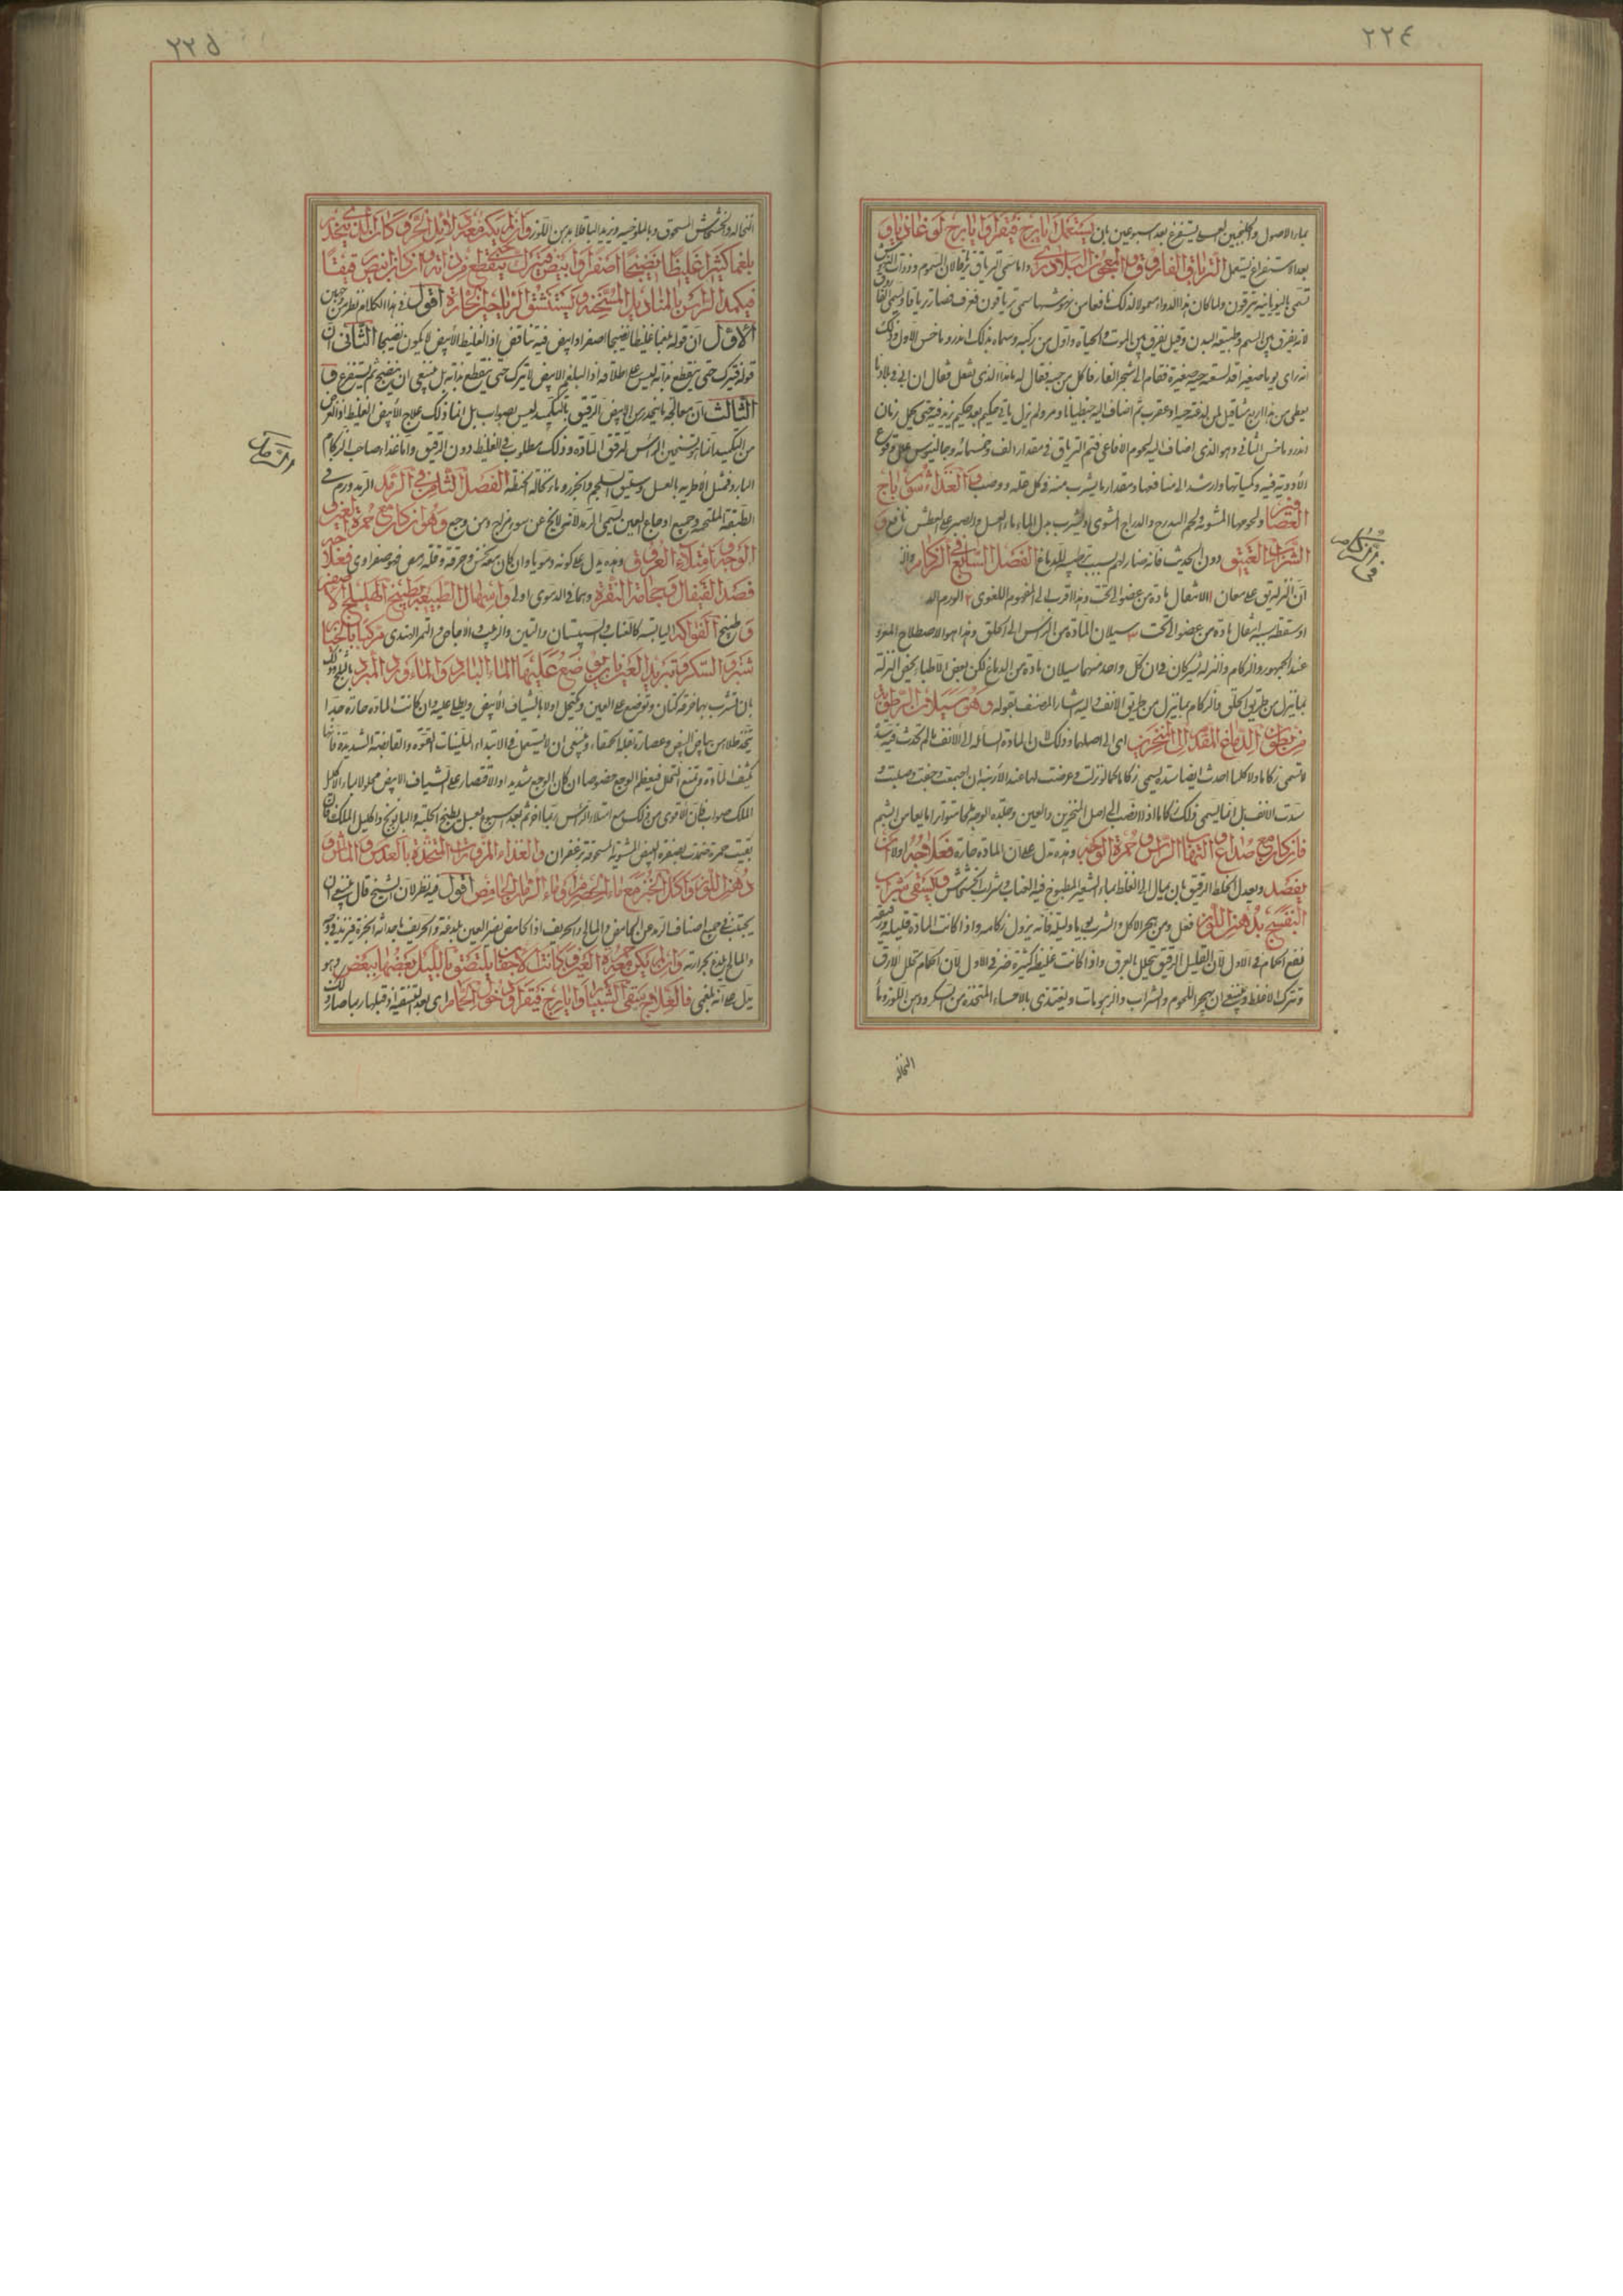 ٢٢٤
بماء الاصول والجلنجبين العسلي يستفرغ بعد اسبوعين بان يستعمل ايارج فيقرا وايارج لوغاذيا و
بعد الاستفراغ يستعمل الترياق الفاروق والمعجون البلادري وانما سمي الترياق ترياقا لان السموم وذوات النهش
تسمى باليونانية تريون ولما كان هذا الدواء معمولا لذلك نافعا من نهوشها سمي ترياقون فعرف فصار ترياقا ويسمى الفاروق
لانه يفرق بين السم وطبيعة البدن وقيل يفرق بين الموت والحياة واول من ركبه وسماه بذلك اندروماخس الاول وذلك
انه راى يوما صغيرا قد لسعته حية صغيرة فقام الى شجر الغار فاكل من حبه فقال له ما هذا الذي تفعل فقال ان ابي في بلادنا
يعطي من هذا اربع مثاقيل لمن لدغته حية او عقرب ثم اضاف اليه جنطيانا ومر ولم يزل ياتي حكيم بعد حكيم يزيد فيه حتى كمل زمان
اندروماخس الثاني وهو الذي اضاف اليه لحوم الافاعي فتم الترياق في مقدار الف وخمسمائة وجالينوس على وقوع
الأدوية فيه وكمياتها وارشد الى منافعها ومقدار ما يشرب منه في كل علة ووصب والغذاء شورباج
العصافير ولحومها المشوية ولحم التدرج والدراج المشوي ويشرب بدل الماء ماء العسل والصبر على العطش نافع و
الشراب العتيق دون الحديث فانه ضار لهم بسبب ترطيبه للدماغ الفصل السابع في الزكام والنز
ان النزلة يق على معان ١ الاشتعال مادة من عضو الى تحت وهذا اقرب الى المفهوم اللغوي ٢ الورم الد
او سقطة بسبب انتقال مادة من عضو الى تحت ٣ سيلان المادة من الراس الى الحلق وهذا هو الاصطلاح المعروف
عند الجمهور والزكام والنزلة شيركان في ان كل واحد منهما سيلان مادة من الدماغ لكن بعض الاطباء يخص النزلة
بما ينزل من طريق الحلق والزكام بما ينزل من طريق الانف واليه اشار المصنف بقوله وهو سيلان الرطوبة
من بطون الدماغ المقدم الى المنخرين اي الى اصلهما وذلك لان المادة السائلة الى الانف ما لم تحدث فيه سدة
لا تسمى زكاما ولا كلما احدث ايضا سدة يسمى زكاما كما لو نزلت وعرضت لها عند الأرنبة ان اجتمعت وجفت وصلبت و
سدت الانف بل انما يسمى ذلك زكاما اذا لا تصب الى اصل المنخرين والعين وجلدة الوجه لها متواترا مانعا من الشم
فان كان مع صداع والتهاب الراس وحمرة الوجه وهذه تدل على ان المادة حارة فعلاجه اولا ان
يفصد ويعدل الخلط الرقيق بان يميل الى الغلظ بماء الشعير المطبوخ فيه العناب وشراب الخشخاش ويسقى شراب
البنفسج بدهن اللوز فعل ومن هجر الاكل والشرب يوما وليلة فانه يزول زكامه واذا كانت المادة قليلة رقيقة
نفع الحمام في الاول لان القليل الرقيق يتحلل بالعرق واذا كانت غليظة كثيرة ضر في الاول لان الحمام تحلل الارق
وتترك الاغلظ وينبغي ان يهجر اللحوم والشراب والزهومات ويغتذي بالاحساء المتخذة من السكر ودهن اللوز وماء
النخالة
في الزكام
٢٢٥
النخالة والخشخاش المسحوق وبالملوخيه ويزيد الباقلا بدهن اللوز وان لم يكن معه دلائل الحر وكان الذي ينحدر
بلغما كثيرا غليظا نضيجا اصفر او ابيض فيترك حتى ينقطع من ذاته وان كان ابيض رقيقا
فيكمد الراس بالمناديل المسخنة ويستنشق الرياحين الحارة اقول في هذا الكلام نظر من وجهين
الاول ان قوله بلغما غليظا نضيجا اصفر او ابيض فيه تناقض اذ الغليظ الأبيض لا يكون نضيجا الثاني ان
قوله فيترك حتى ينقطع من ذاته ليس على اطلاقه اذ البلغم الابيض لا يترك حتى ينقطع من ذاته بل ينبغي ان ينضج ثم يستفرغ و
الثالث ان معالجة ما ينحدر من الابيض الرقيق بالتكميد ليس بصواب بل انما ذلك علاج الأبيض الغليظ اذ الغرض
من التكميد انما هو تسخين الراس لترقق المادة وذلك مطلوب في الغليظ دون الرقيق واما غذاء صاحب الزكام
البارد فمثل الأطرية بالعسل وسليق السلجم والجزر وماء نخالة الحنطة الفصل الثامن في الرمد الرمد ورم في
الطبقة الملتحمة وجميع اوجاع العين يسمى الرمد لانه لا يخ عن سوء مزاج ومن وجع وهو ان كان مع حمرة العين و
الوجه وامتلاء العروق وهذه يدل على كونه دمويا وان كان مع نخس وحرقة وقلة رمص فهو صفراوي فعلاجه
فصد القيفال وحجامة النقرة وهما في الدموي اولى واسهال الطبيعة بطبيخ الهليلج الاصفر
وطبيخ الفواكه اليابسة كالعناب والسبستان والتين والزبيب والأجاص والتمر الهندي مركبا بالخيار
شنبر والسكر وتبريد العين بان يوضع عليها الماء البارد والماورد المبرد بالثلج وذلك
بان تشرب بها خرقة كتان وتوضع على العين وتكحل اولا بالشياف الأبيض ويطلى عليه وان كانت المادة حارة جدا
يتخذ طلاء من بياض البيض وعصارة بقلة الحمقاء وينبغي ان لا يستعمل في الابتداء الملينات القوية والقابضة الشديدة فانها
تكثف المادة وتمنع التحلل فيعظم الوجع خصوصا ان كان الوجع شديدا والاقتصار على الشياف الابيض محلولا بماء الاكليل
الملك صواب فان الاقوى من ذلك مع امتلاء الراس ربما اضر ثم بعد اسبوع يغسل بطبيخ الحلبة والبابونج واكليل الملك فان
بقيت حمرة ضمدت بصفرة البيض المشوية المسحوقة بزعفران والغذاء المزورات المتخذة بالعدس والماش و
دهن اللوز واكل الخبز مع ماء الحصرم او ماء الرمان الحامض اقول فيه نظر لان الشيخ قال ينبغي ان
يجتنب في جميع اصناف الرمد عن الحامض والمالح والحريف اذ الحامض يضر العين بلذعه والحريف باحداثه الحمرة فيزيد في وجعه
والمالح بلذعه بحرارته وان لم يكن معه حمرة العين وكانت الاجفان يلتصق بالليل بعضها ببعض وهو
يدل على انه بلغمي فالعلاج سقى الشبيار وايارج فيقرا ودخول الحمام اي بعد التنقية اذ قبلها ربما صار ذلك
الرمد